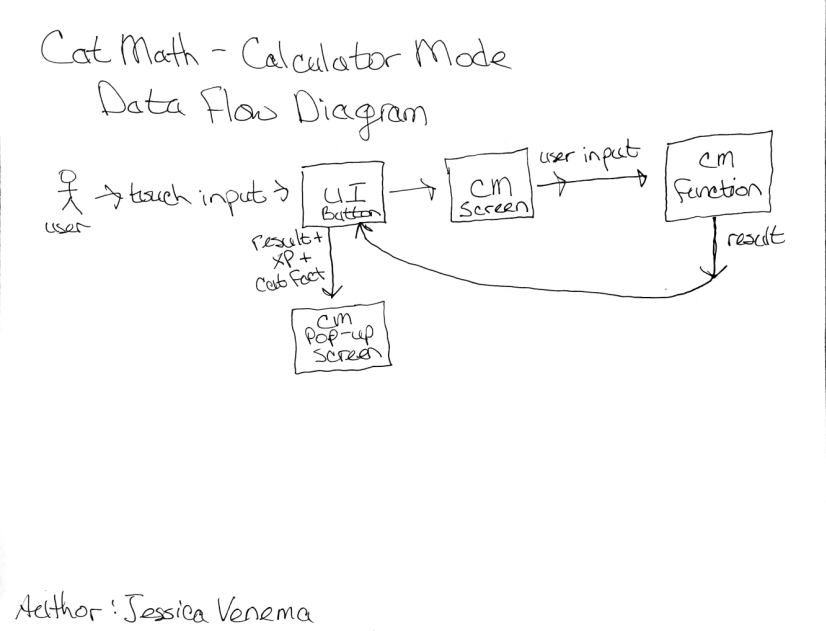 Cat Math - Calculator Mode
Data Flow Diagram
user
touch input
UI
Button
CM
Screen
user input
CM
Function
result
result +
XP +
Cat Fact
CM
Pop-up
Screen
Author: Jessica Venema